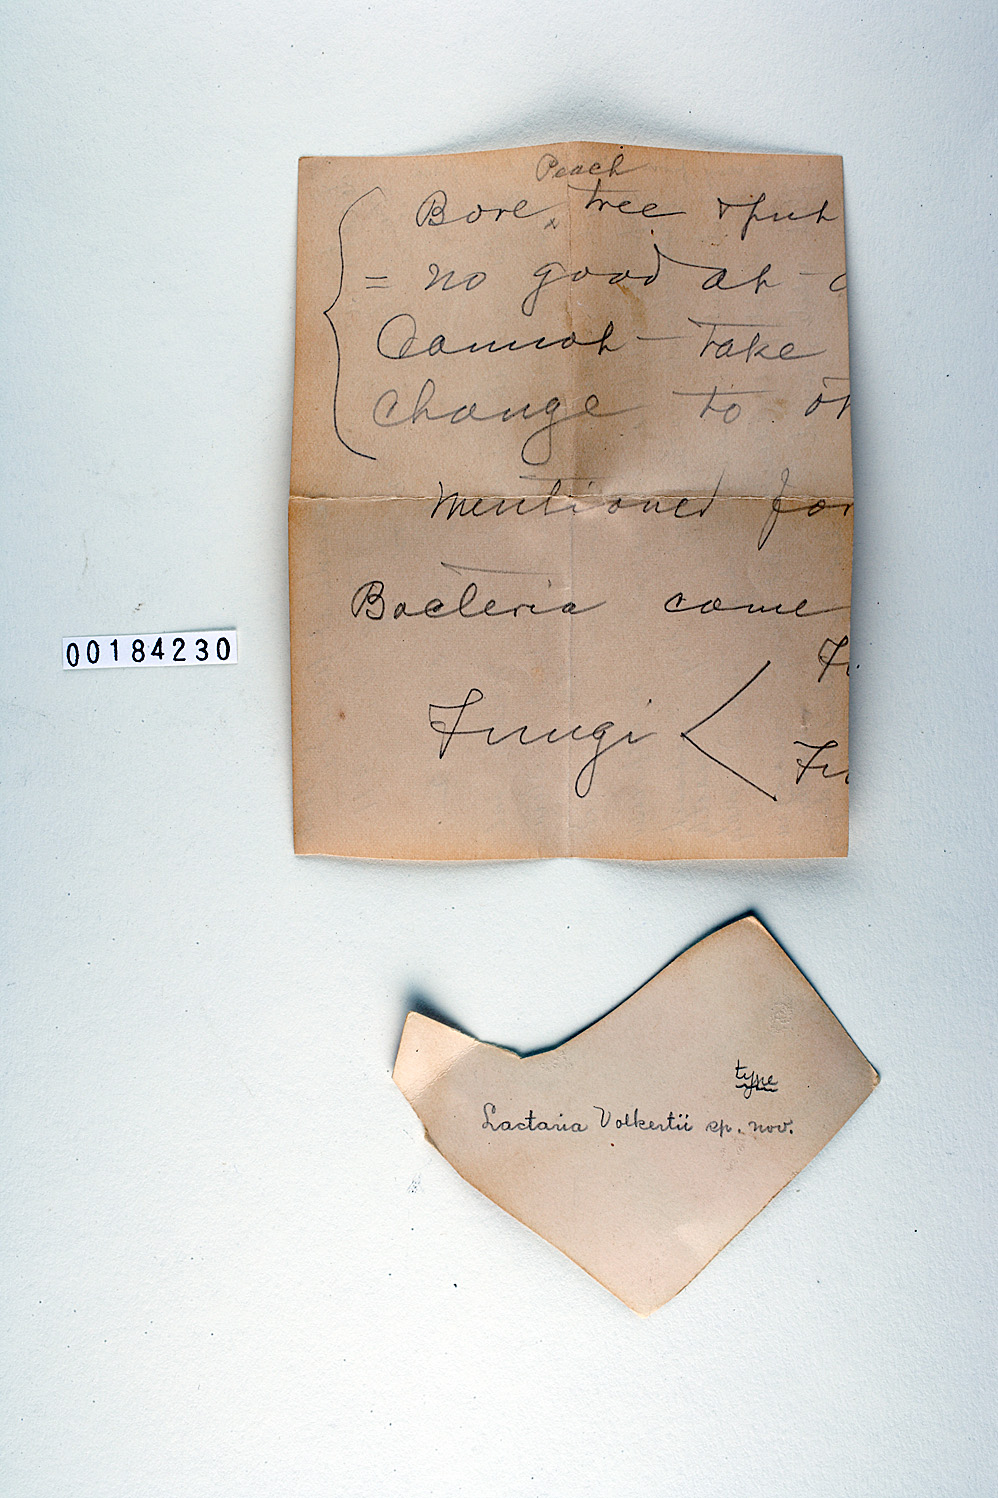 Peach
Bore tree & put
= no good at
Cannot take
change to
mentioned for
Bacteria come
Fungi
00184230
type
Lactaria Volkertii sp. nov.